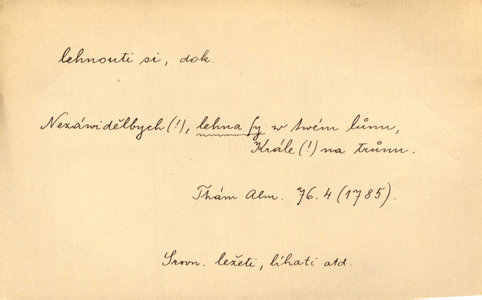 lehnouti si, dok.
Nezáwidělbych (!), lehna sy w twém lůnu,
Krále (!) na trůnu.
Thám Alm. 76. 4 (1785).
Srovn. ležeti, líhati atd.